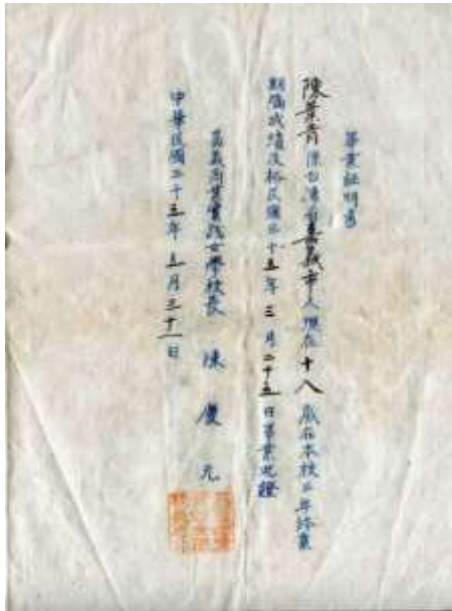 畢業証明書
陳葉青係台灣省嘉義市人現在十八歲在本校三年修業
期滿成績及格民國三十五年三月二十五日畢業此證
嘉義業實践女學校長 陳慶元
中華民國三十五年五月三十一日